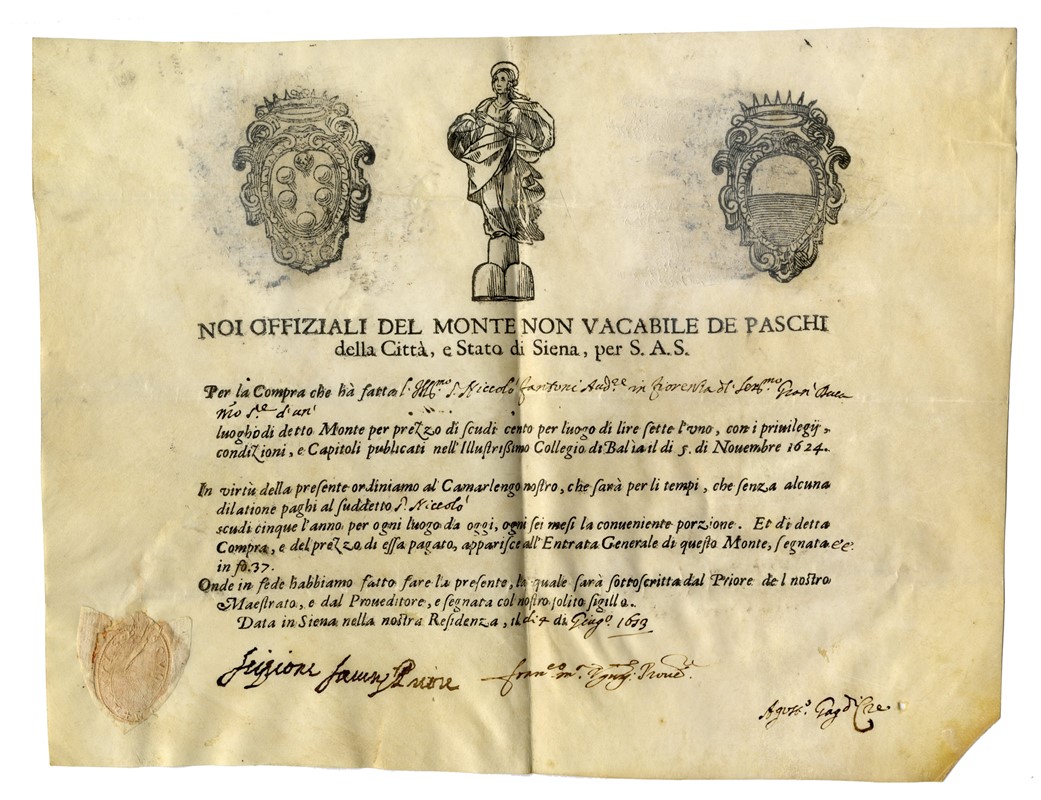 NOI OFFIZIALI DEL MONTE NON VACABILE DE PASCHI
della Città, e Stato di Siena, per S. A. S.
Per la Compra che hà fatta l. Ill.mo S. Niccolò Fantoni Aud.re in Fiorenza del Ser.mo Gran Duca
luoghi di detto Monte per prezzo di scudi cento per luogo di lire sette l'uno, con i priuilegij,
condizioni, e Capitoli publicati nell'Illustrissimo Collegio di Balìa il dì 5. di Nouembre 1624.
In virtù della presente ordiniamo al Camarlengo nostro, che sarà per li tempi, che senza alcuna
dilatione paghi al suddetto S. Niccolò
scudi cinque l'anno per ogni luogo da oggi, ogni sei mesi la conueniente porzione. Et di detta
Compra, e del prezzo di essa pagato, apparisce all'Entrata Generale di questo Monte, segnata
in fo. 37.
Onde in fede habbiamo fatto fare la presente, la quale sarà sottoscritta dal Priore del nostro
Maestrato, e dal Proueditore, e segnata col nostro solito sigillo.
Data in Siena nella nostra Residenza, il dì 4 di Giug.o
Priore